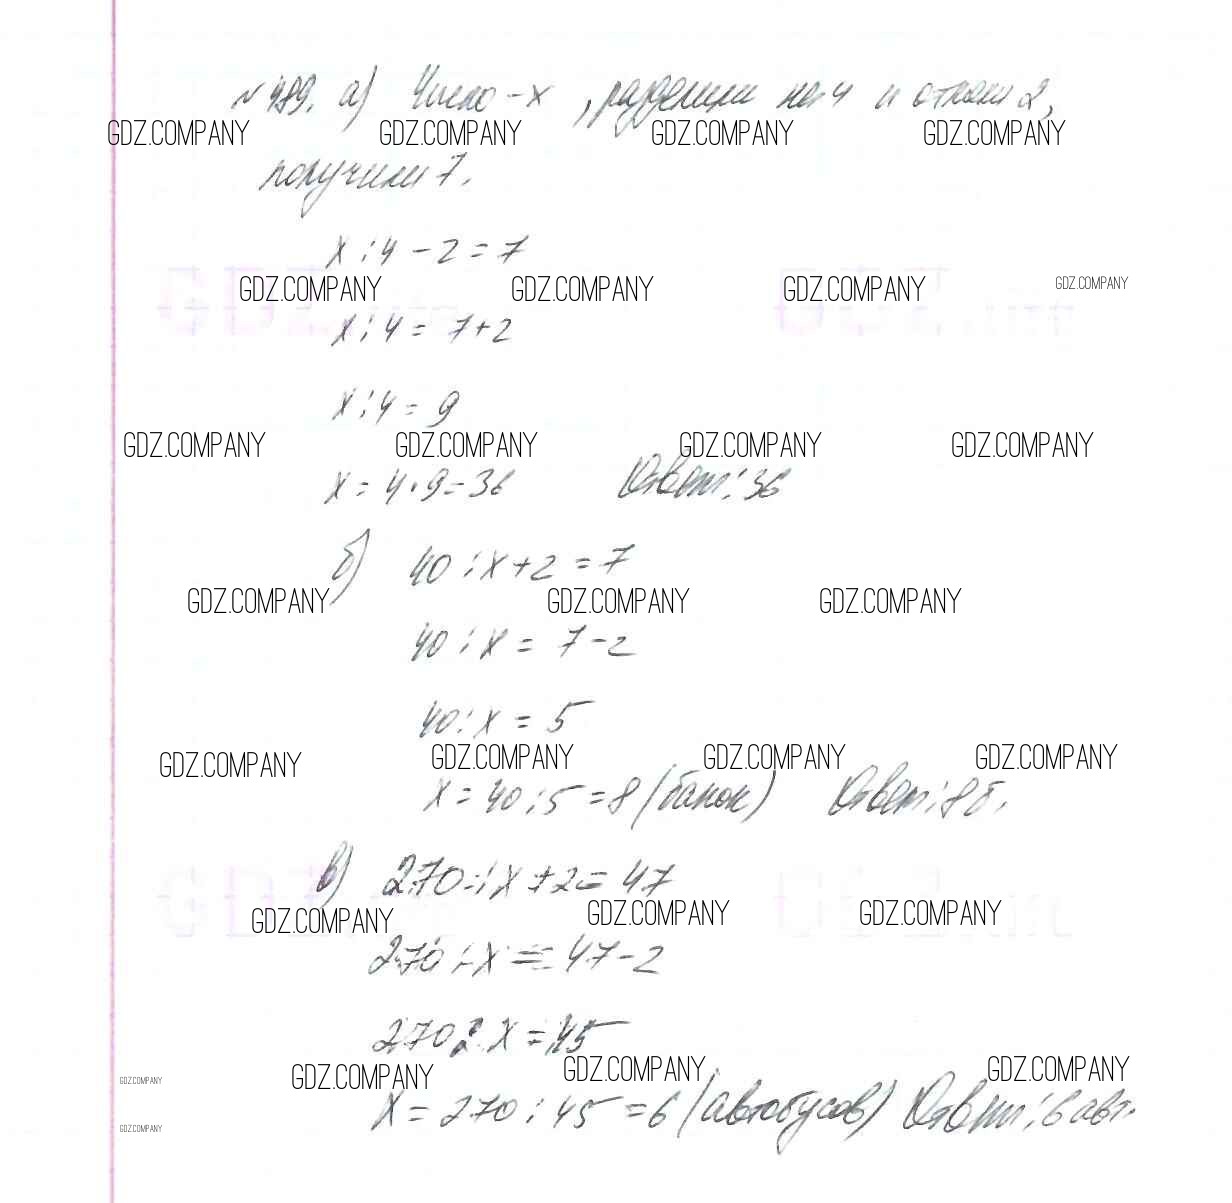 № 489. а) Число - x, разделили на 4 и отняли 2,
GDZ.COMPANY GDZ.COMPANY GDZ.COMPANY GDZ.COMPANY
получили 7.
x : 4 - 2 = 7
GDZ.COMPANY GDZ.COMPANY GDZ.COMPANY GDZ.COMPANY
x : 4 = 7 + 2
x : 4 = 9
GDZ.COMPANY GDZ.COMPANY GDZ.COMPANY GDZ.COMPANY
x = 4 · 9 = 36 Ответ: 36
б) 40 : x + 2 = 7
GDZ.COMPANY GDZ.COMPANY GDZ.COMPANY
40 : x = 7 - 2
40 : x = 5
GDZ.COMPANY GDZ.COMPANY GDZ.COMPANY GDZ.COMPANY
x = 40 : 5 = 8 (банок) Ответ: 8 б.
в) 270 : x + 2 = 47
GDZ.COMPANY GDZ.COMPANY GDZ.COMPANY
270 : x = 47 - 2
270 : x = 45
GDZ.COMPANY GDZ.COMPANY GDZ.COMPANY GDZ.COMPANY
x = 270 : 45 = 6 (автобусов) Ответ: 6 авт.
GDZ.COMPANY